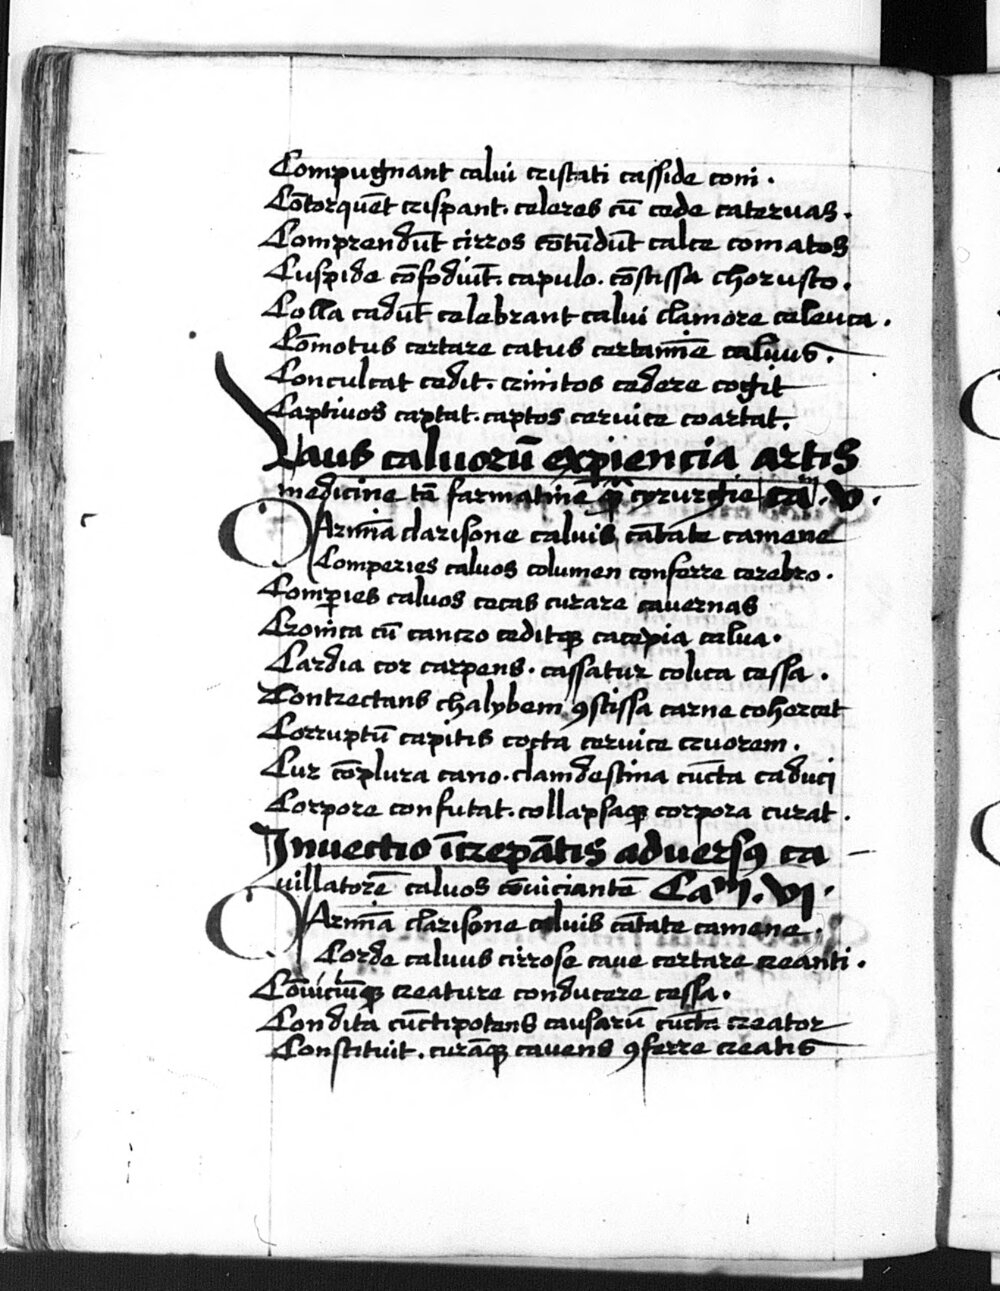 Compugnant calui cristati casside coni.
Cōtorquēt crispant. celeres cū cede cateruas.
Comprendūt cirros cōtūdūt calce comatos
Cuspide cōfodiūt. capulo. cōstissa chorusto.
Colla cadūt celebrant calui clamore celeuca.
Cōmotus certare catus certamīe caluus.
Conculcat cedit. crinitos cedere cogit
Captiuos captat. captos ceruice coartat.
Laus caluorū expiencia artis
medicine tā farmatine q̄ cyrurgie Cam. V.
CArmīa clarisone caluis cātate camene
Comperies caluos columen conferre cerebro.
Comperies caluos cecas curare cauernas
Cronica cū cancro ceditqꝫ catepia calua.
Cardia cor carpens. cassatur colica cessa.
Contrectans chalybem ꝯstissa carne cohercet
Corruptū capitis cocta ceruice cruorem.
Cur cōplura cano. clamdestina cūcta caduci
Corpore confutat. collapsaqꝫ corpora curat.
Inuectio īcrepātis aduersꝰ ca
uillatorē caluos cōuiciantē Cam. VI.
CArmīa clarisone caluis cātate camene.
Corde caluus cirrose caue certare creanti.
Cōuiciūqꝫ creature conducere cessa.
Condita cūctipotens causarū cūcta creator
Constituit. curāqꝫ cauens ꝯferre creatis